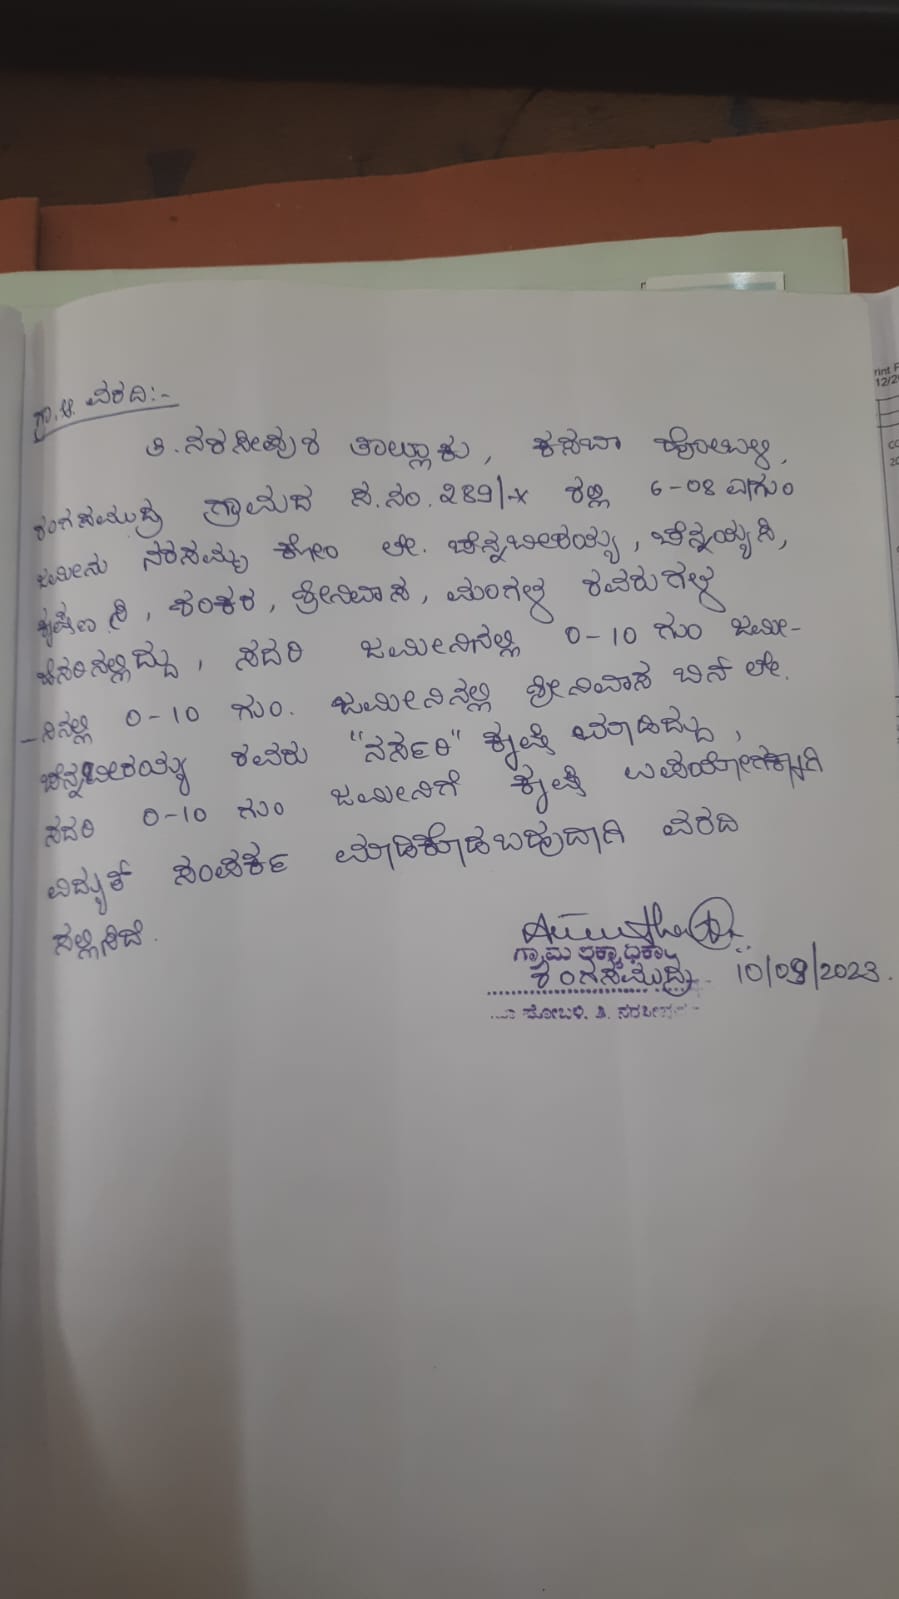 ಗ್ರಾ.ಆ. ವರದಿ:-
ತಿ.ನರಸೀಪುರ ತಾಲ್ಲೂಕು, ಕಸಬಾ ಹೋಬಳಿ,
ರಂಗಸಮುದ್ರ ಗ್ರಾಮದ ಸ.ನಂ. 289/-x ರಲ್ಲಿ 6-08 ಎ/ಗುಂ
ಜಮೀನು ನರಸಮ್ಮ ಕೋಂ ಲೇ. ಚೆನ್ನಬೀರಯ್ಯ, ಚೆನ್ನಯ್ಯ ಸಿ,
ಕೃಷ್ಣ ಸಿ, ಶಂಕರ, ಶ್ರೀನಿವಾಸ, ಮಂಗಳ ರವರುಗಳ
ಹೆಸರಿನಲ್ಲಿದ್ದು, ಸದರಿ ಜಮೀನಿನಲ್ಲಿ 0-10 ಗುಂ ಜಮೀ-
-ನಿನಲ್ಲಿ 0-10 ಗುಂ. ಜಮೀನಿನಲ್ಲಿ ಶ್ರೀನಿವಾಸ ಬಿನ್ ಲೇ.
ಚೆನ್ನಬೀರಯ್ಯ ರವರು "ನರ್ಸರಿ" ಕೃಷಿ ಮಾಡಿದ್ದು,
ಸದರಿ 0-10 ಗುಂ ಜಮೀನಿಗೆ ಕೃಷಿ ಉಪಯೋಗಕ್ಕಾಗಿ
ವಿದ್ಯುತ್ ಸಂಪರ್ಕ ಮಾಡಿಕೊಡಬಹುದಾಗಿ ವರದಿ
ಸಲ್ಲಿಸಿದೆ.
ಗ್ರಾಮ ಲೆಕ್ಕಾಧಿಕಾರಿ
ರಂಗಸಮುದ್ರ 10/08/2023.
ಹೋಬಳಿ. ತಿ. ನರಸೀಪುರ
rint
12/20